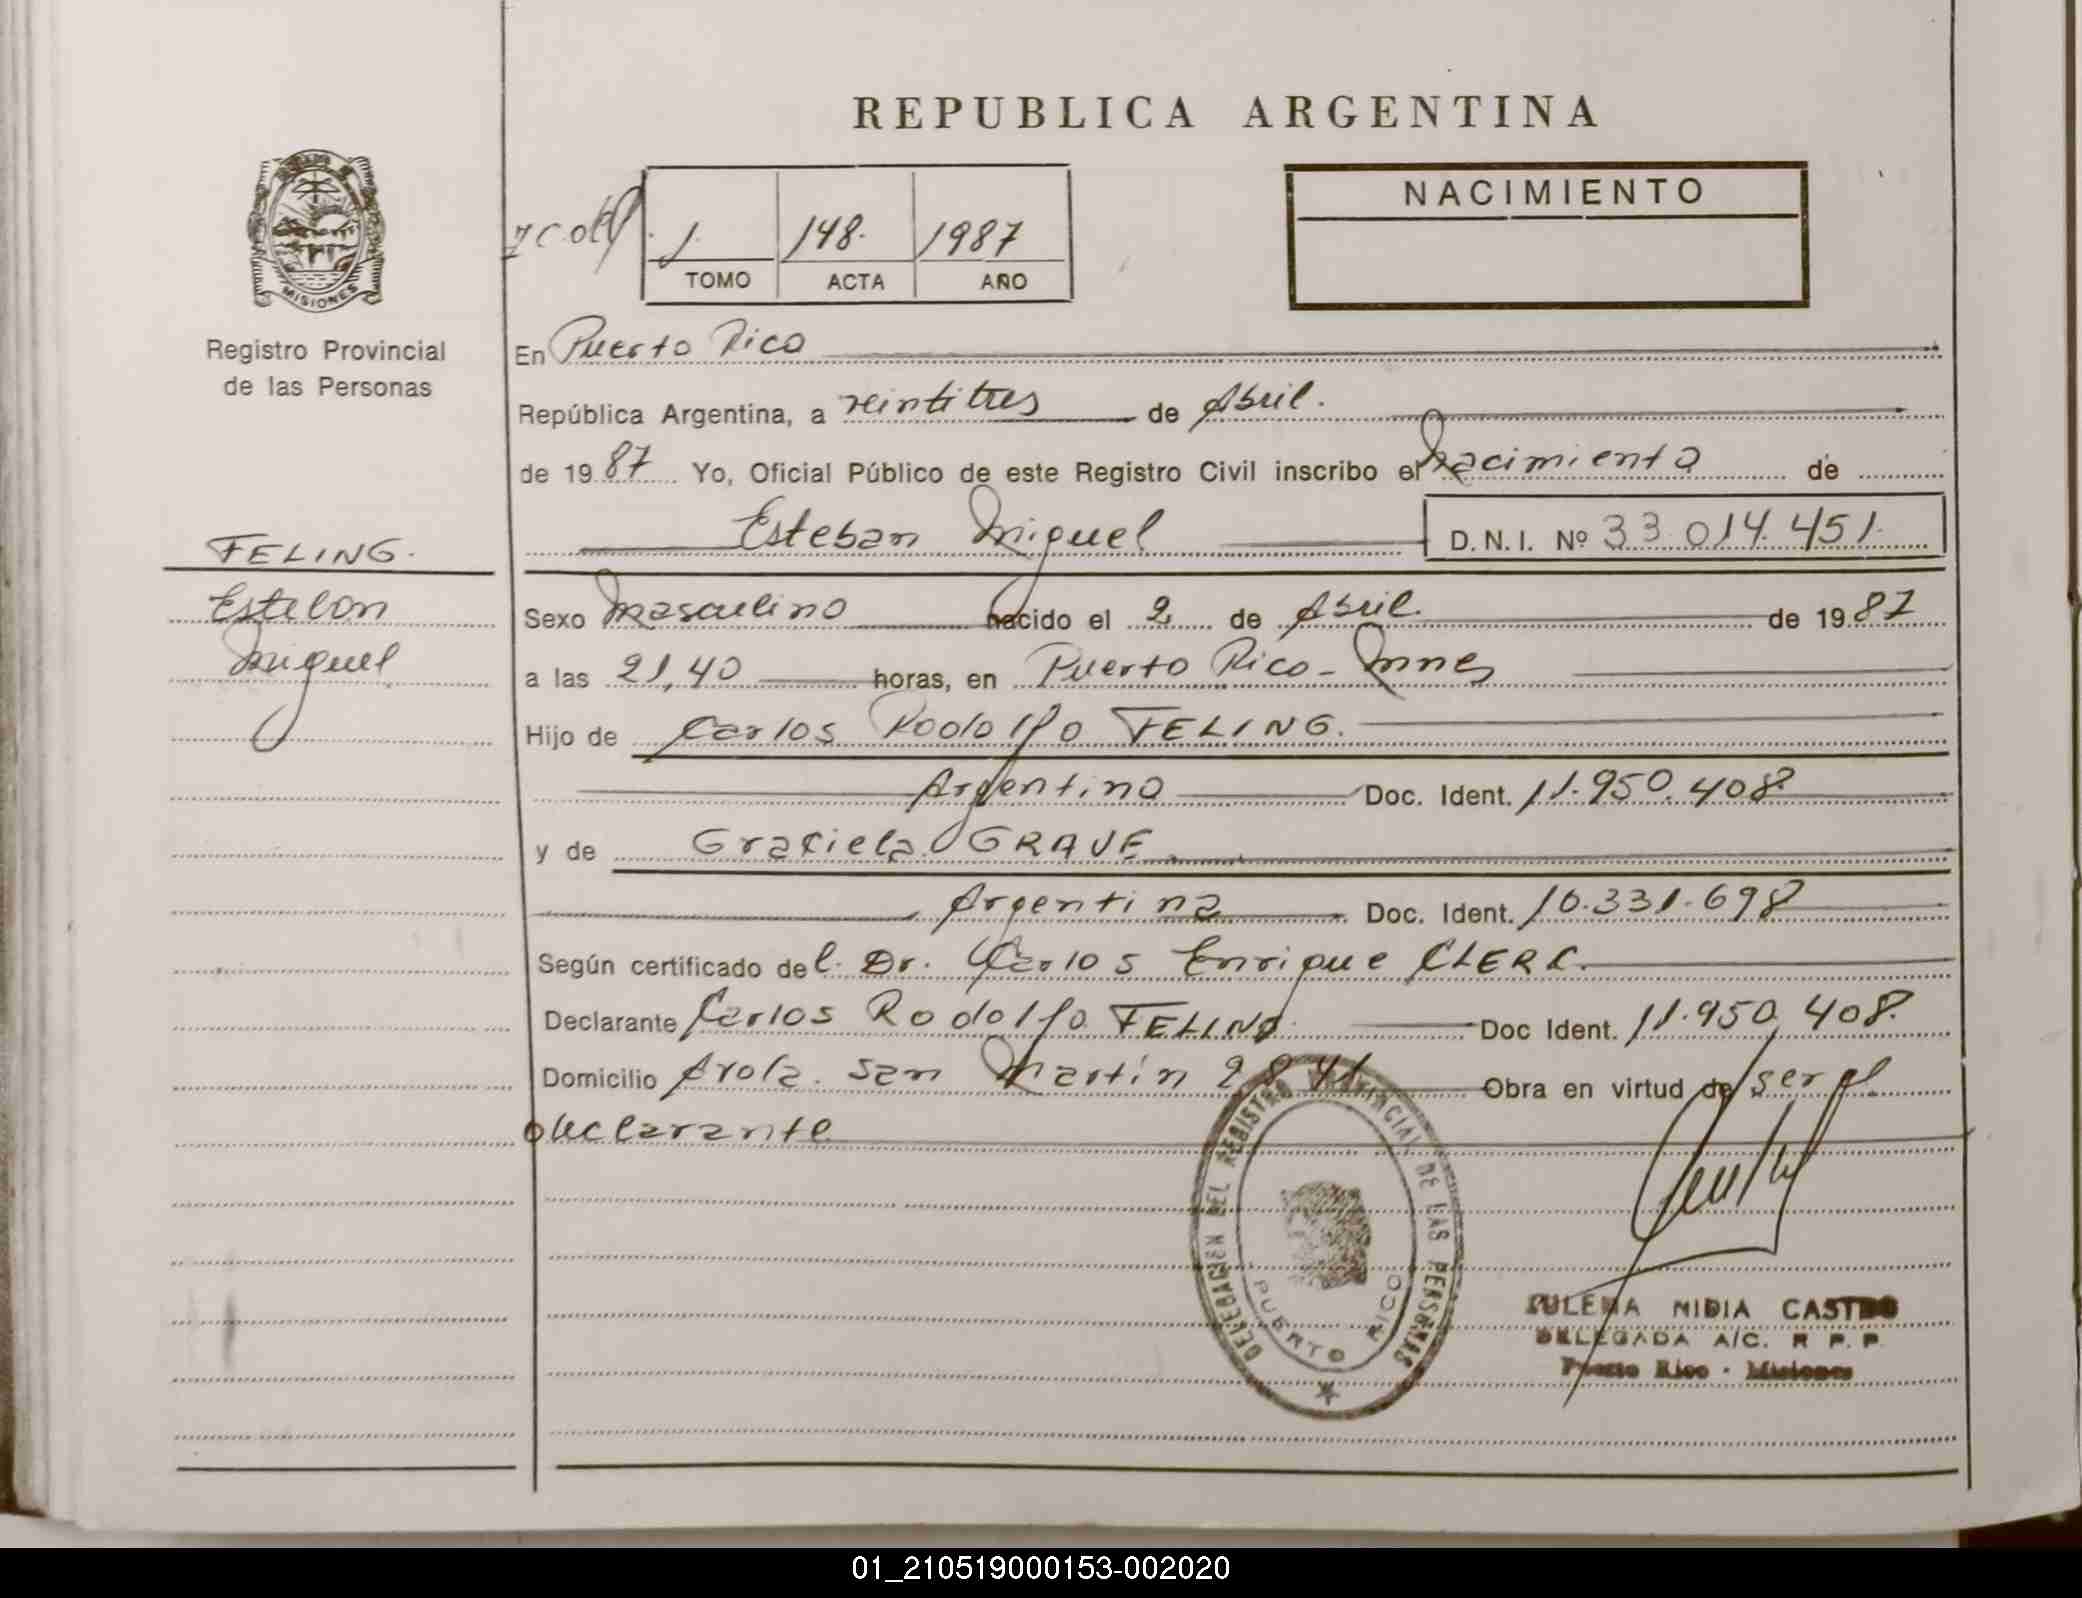 REPUBLICA ARGENTINA
MISIONES
Registro Provincial
de las Personas
1. 148. 1987
TOMO ACTA AÑO
NACIMIENTO
En Puerto Rico
República Argentina, a veintitres de Abril.
de 1987 Yo, Oficial Público de este Registro Civil inscribo el nacimiento de
Esteban Miguel D.N.I. Nº 33.014.451.
FELING.
Esteban
Miguel
Sexo Masculino nacido el 2 de Abril. de 1987
a las 21,40 horas, en Puerto Rico - Mnes
Hijo de Carlos Rodolfo FELING.
Argentino Doc. Ident. 11.950.408
y de Graciela GRAVE
Argentina Doc. Ident. 10.331.698
Según certificado del Dr. Carlos Enrique CLERC.
Declarante Carlos Rodolfo FELING. Doc Ident. 11.950.408.
Domicilio Avda. San Martín 2841 Obra en virtud de ser el
declarante
DELEGACION DEL REGISTRO PROVINCIAL DE LAS PERSONAS
PUERTO RICO
ZULEMA NIDIA CASTRO
DELEGADA A/C. R P. P.
Puerto Rico - Misiones
01_210519000153-002020